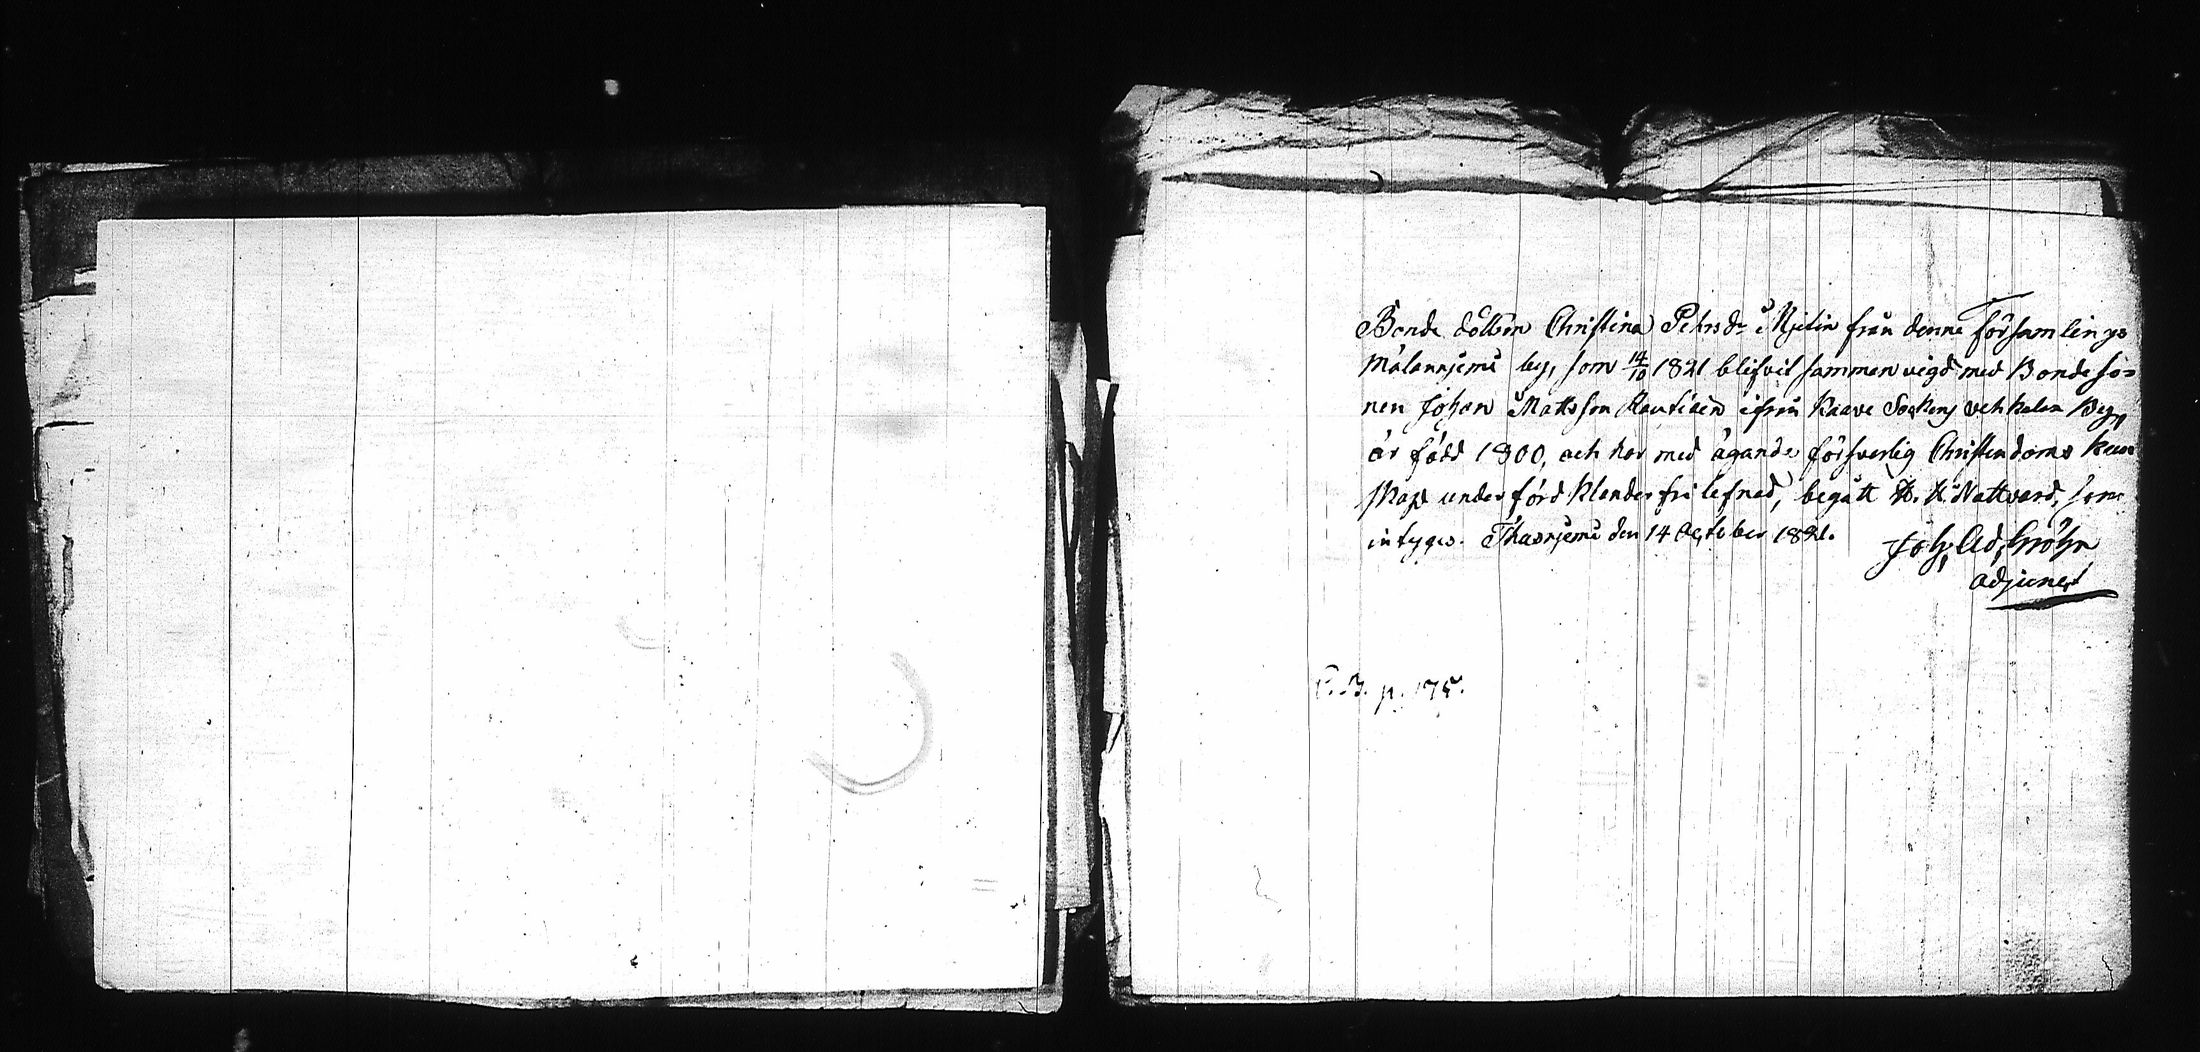 Bonde dottren Christina Petersdr Njitin från denne Församlings
Malannjemi by, som 14/10 1821 blifvit sammanvigd med Bondeso=
nen Johan Mattsson Rautiain ifrån Kaavi Sockens och by,
är född 1800, och har med ägande försvarlig Christendoms kun
skap under förd klanderfri lefnad, begått H. H. Nattvard, som
intyges. Thaonjemi den 14 October 1821. Joh, Ad, Gröhn
adjunct
C.B. p. 175.